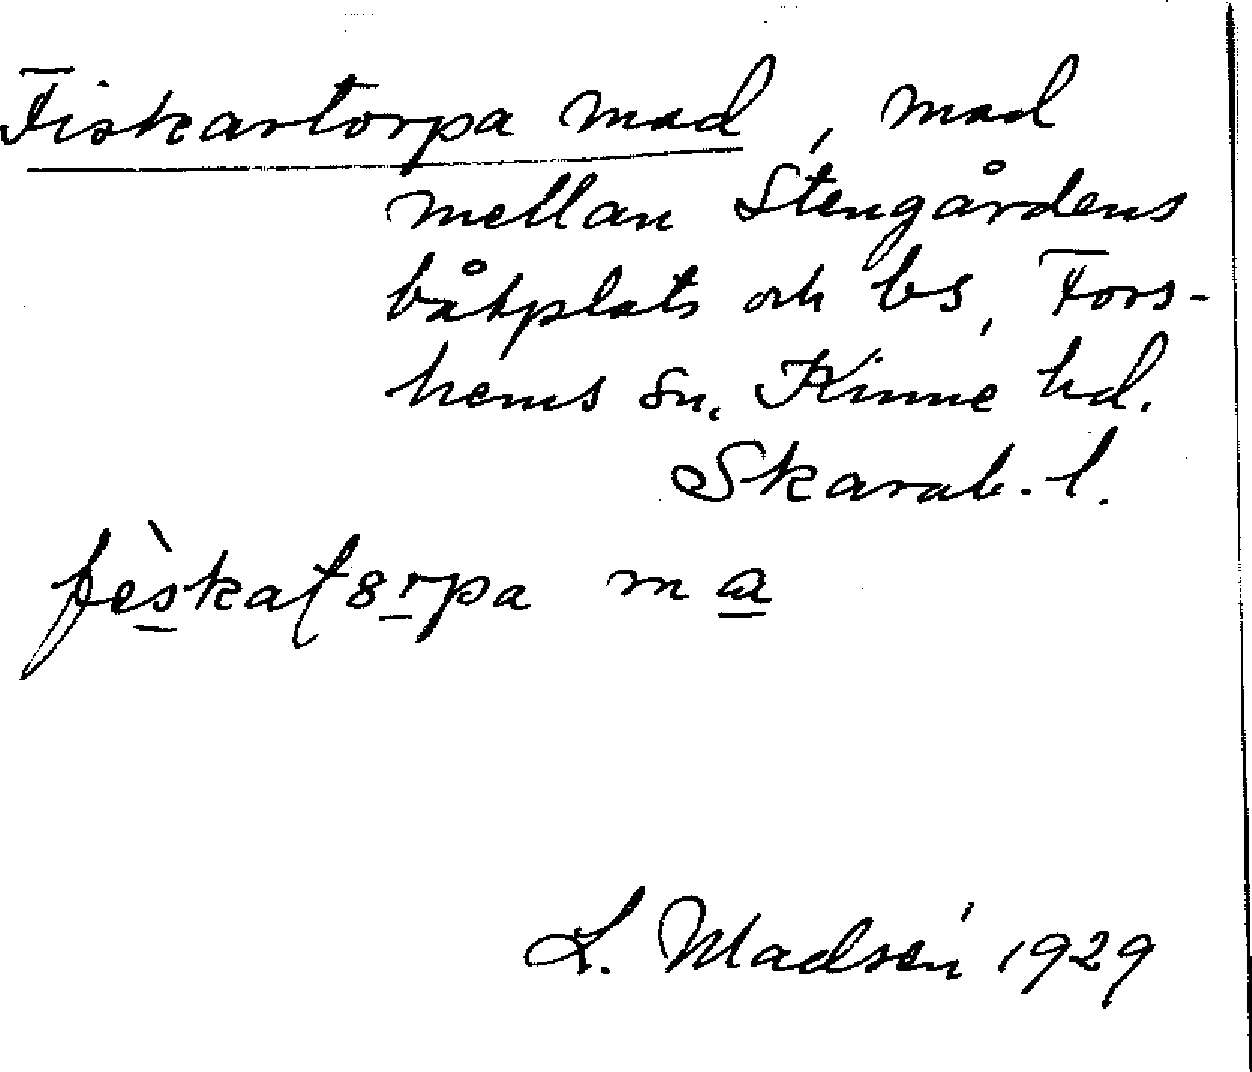 Fiskartorpa mad, mad
mellan Stengårdens
båtplats och bs, Fors-
hems sn. Kinne hd.
Skarab. l.
fèskat8rpa ma
L. Madsén 1929